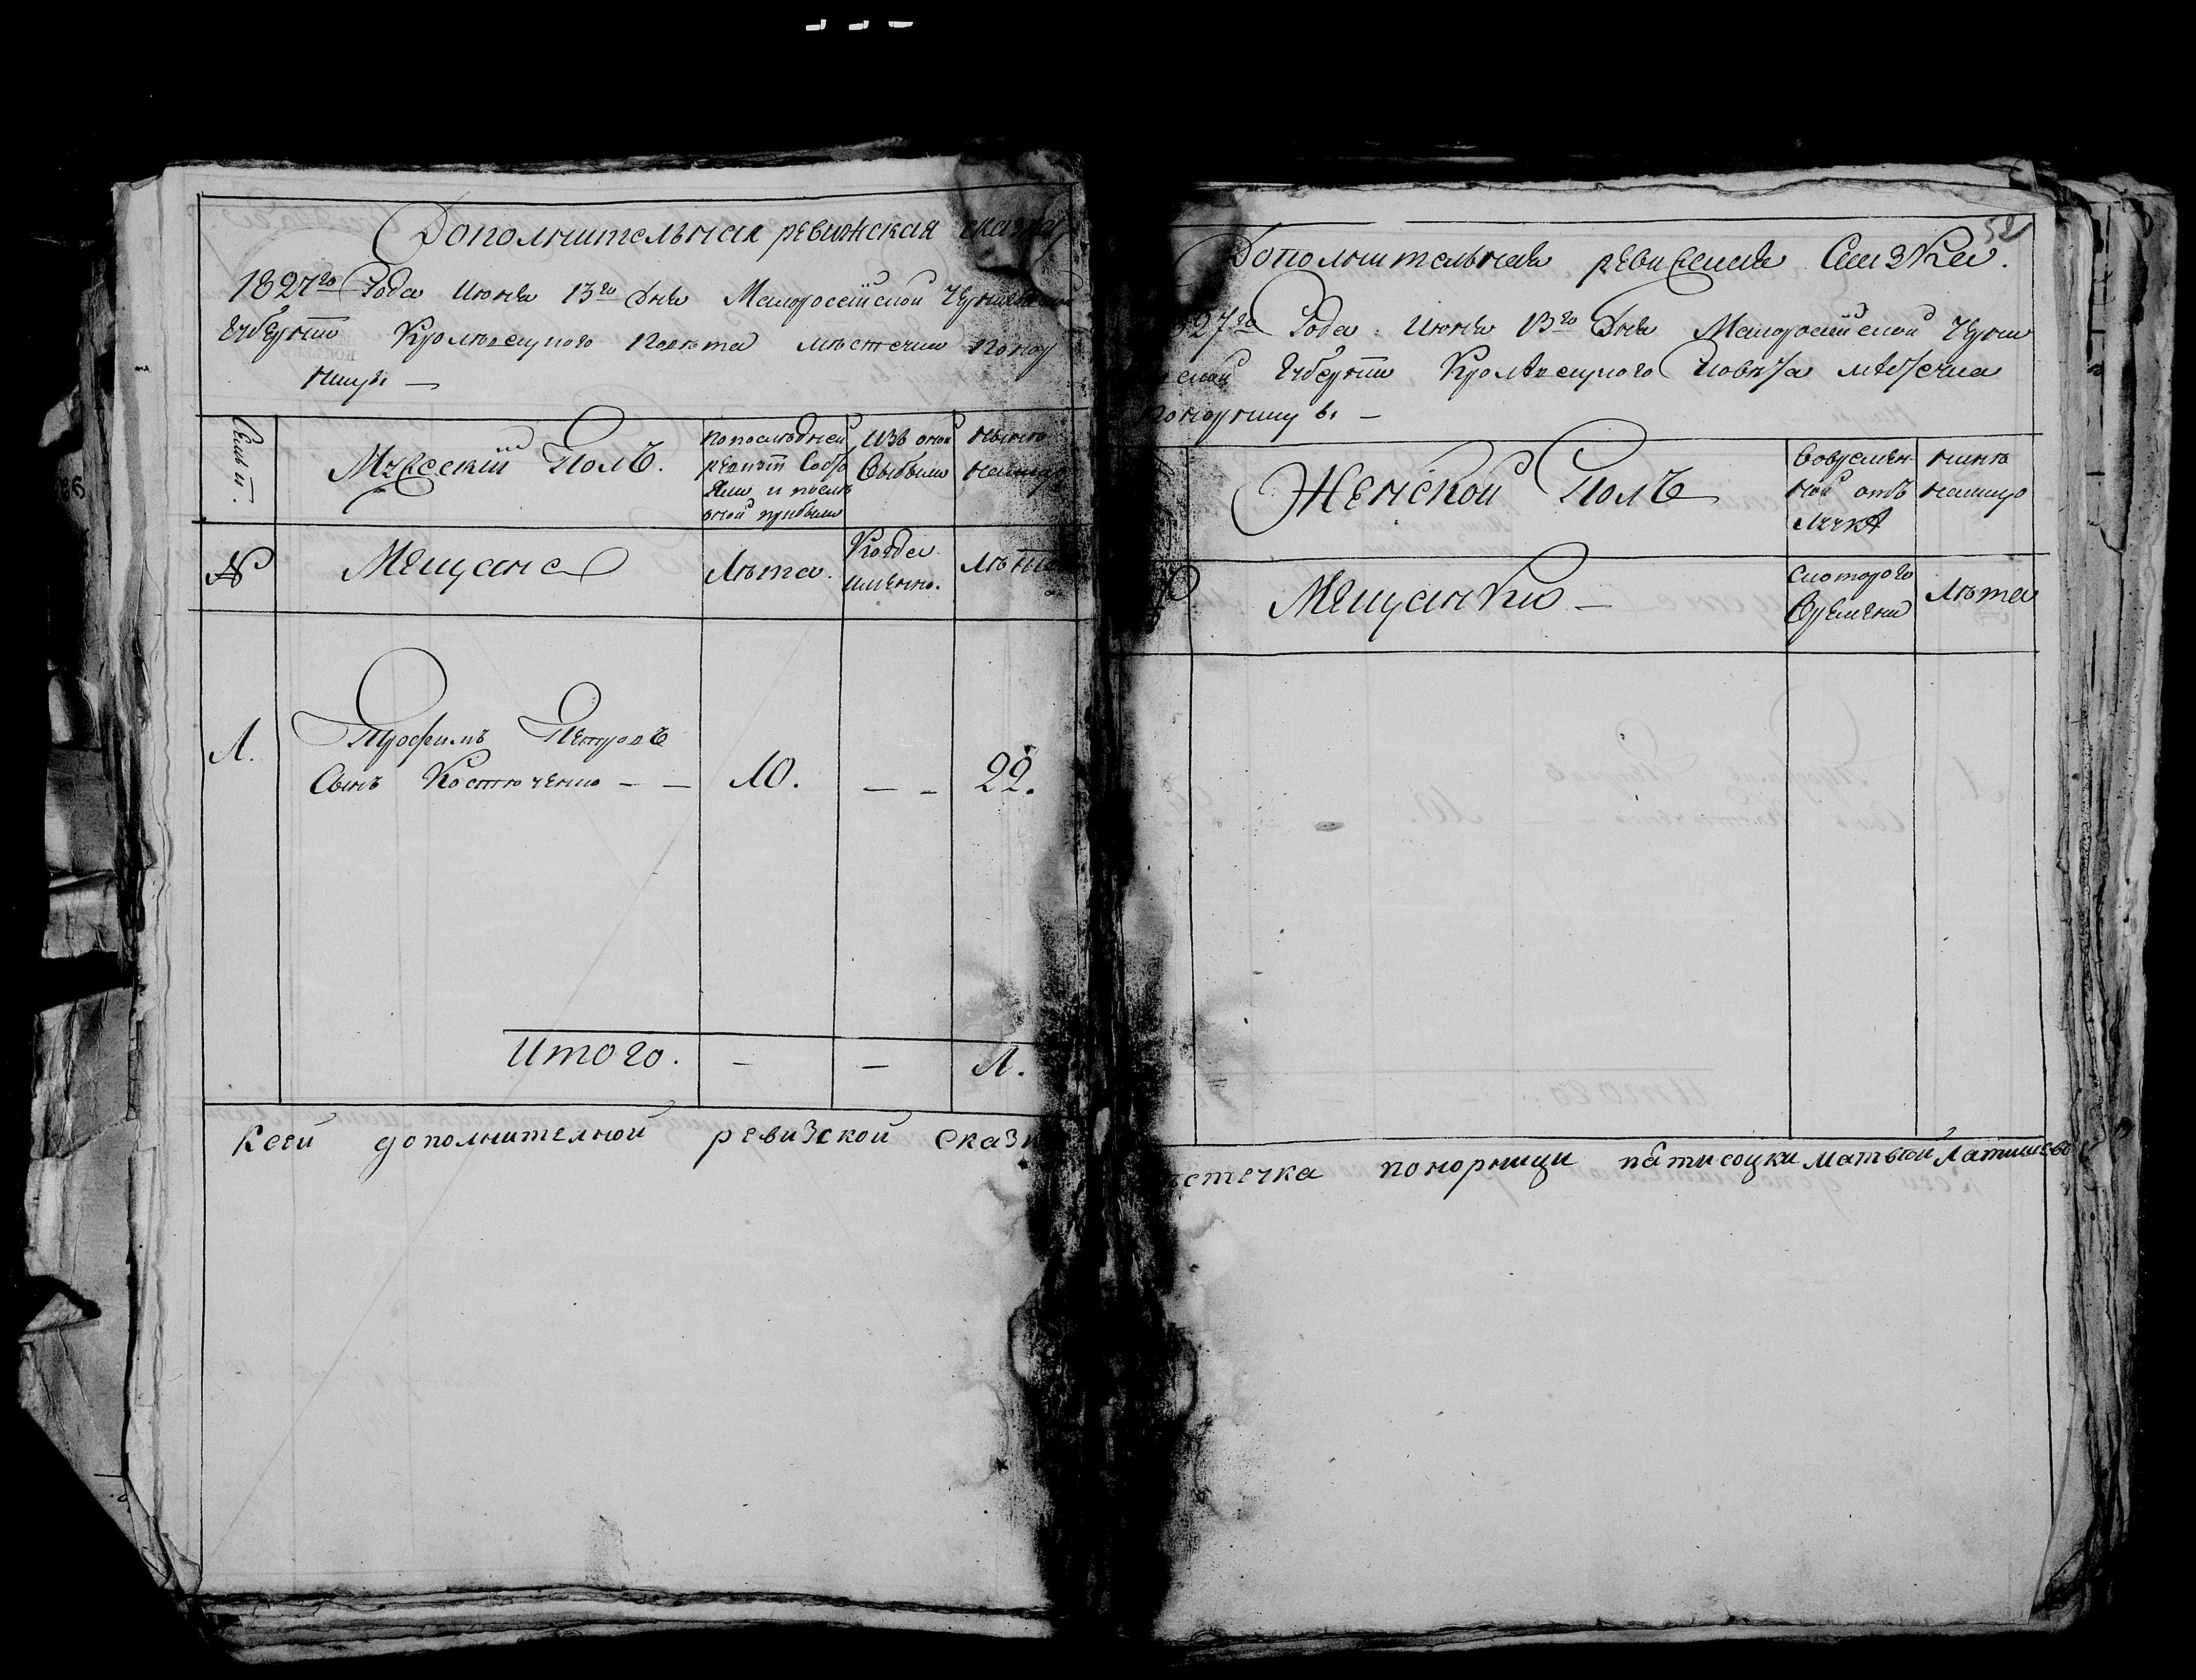 Дополнительная ревижская сказка
1827го Года Июня 13го Дня Малоросійской
Губерніи Кролевецкого Повета местечка Поно
ницы —
Мужескій Полъ.
попоследней
ревизіи Состо
яли и после
оной прибыли
Изъ оной
Выбыли
ныне
налицо
№
Мещане
Лета.
Когда
именно.
Лета
1.
Трофимъ Петровъ
Сынъ Костюченко — —
10.
— —
22.
Итого.
—
—
1.
Ксей дополнителной ревизской сказк
52
Дополнительная ревизская Сказка.
827го Года Июня 13го Дня Малоросійской Черни
ской Губерніи Кролевецкого Повета местечка
Понорницы —
Женской Полъ
Вовремен
ной отъ
лучке
ныне
налицо
Мещанки —
Скоторого
Времени
Лета
естечка понорници патисоцки Матвѣй Латишево